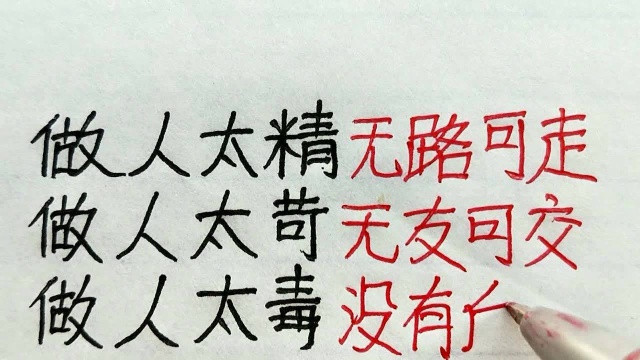 做人太精无路可走
做人太苛无友可交
做人太毒没有